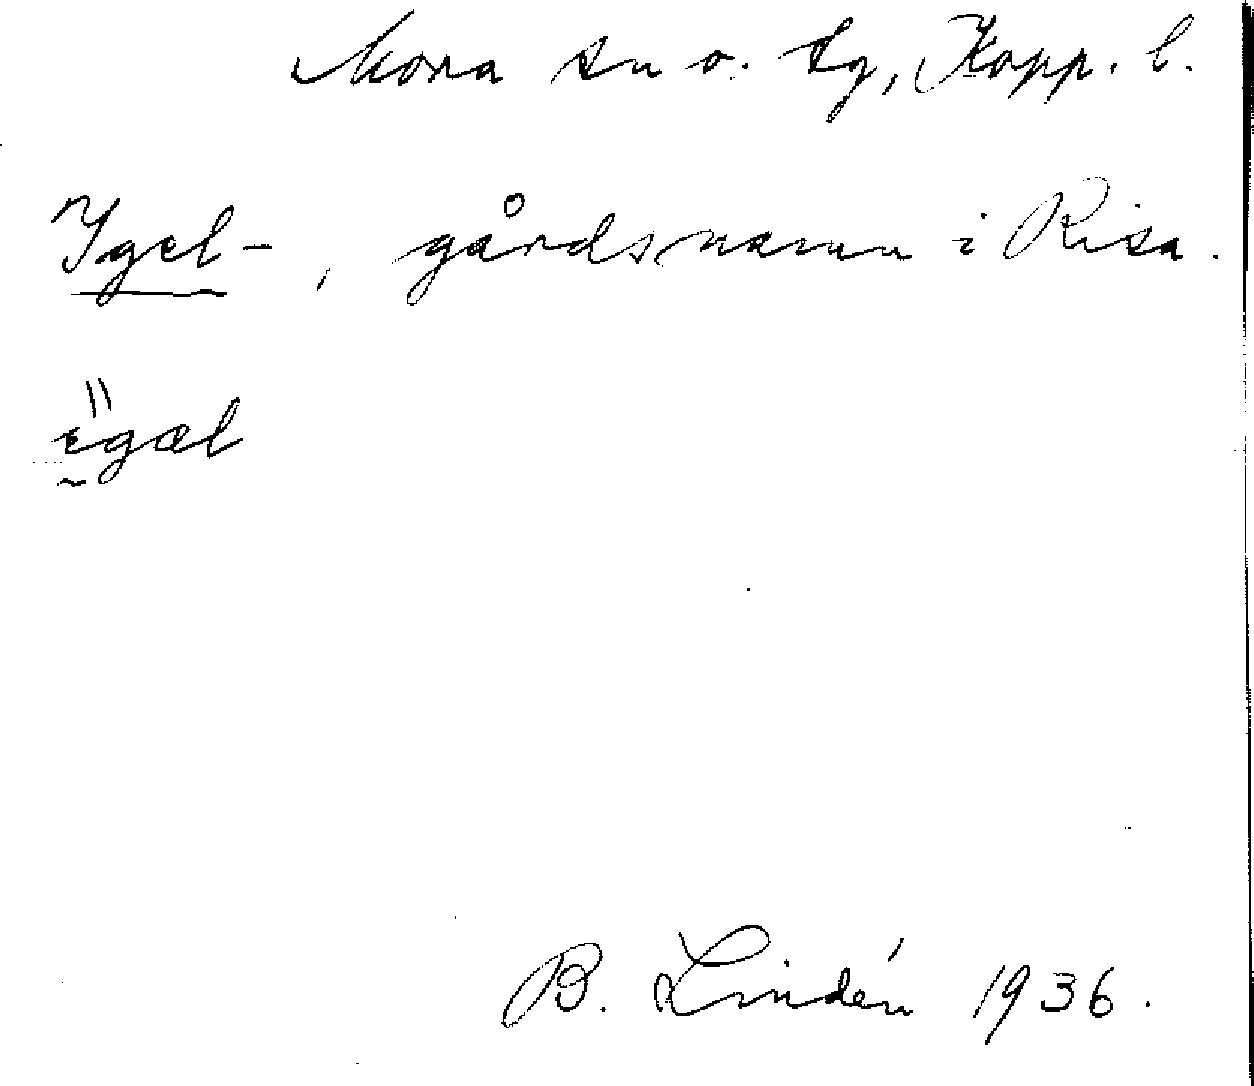 Mora sn o. tg, Kopp. l.
Igel-, gårdsnamn i Risa.
ìgæl
B. Lindén 1936.